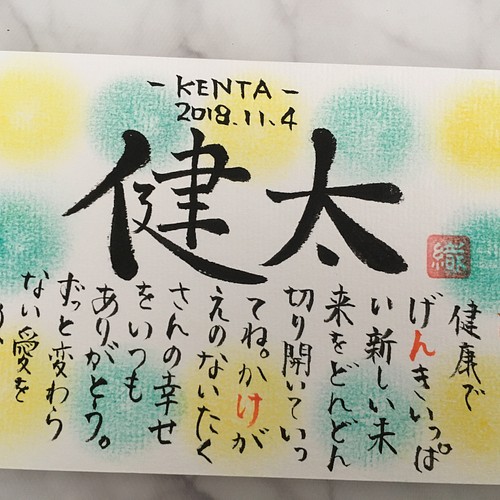 - KENTA -
2018.11.4
健太
織
健康で
げんきいっぱ
い新しい未
来をどんどん
切り開いていっ
てね。かけが
えのないたく
さんの幸せ
をいつも
ありがとう。
ずっと変わら
ない愛を